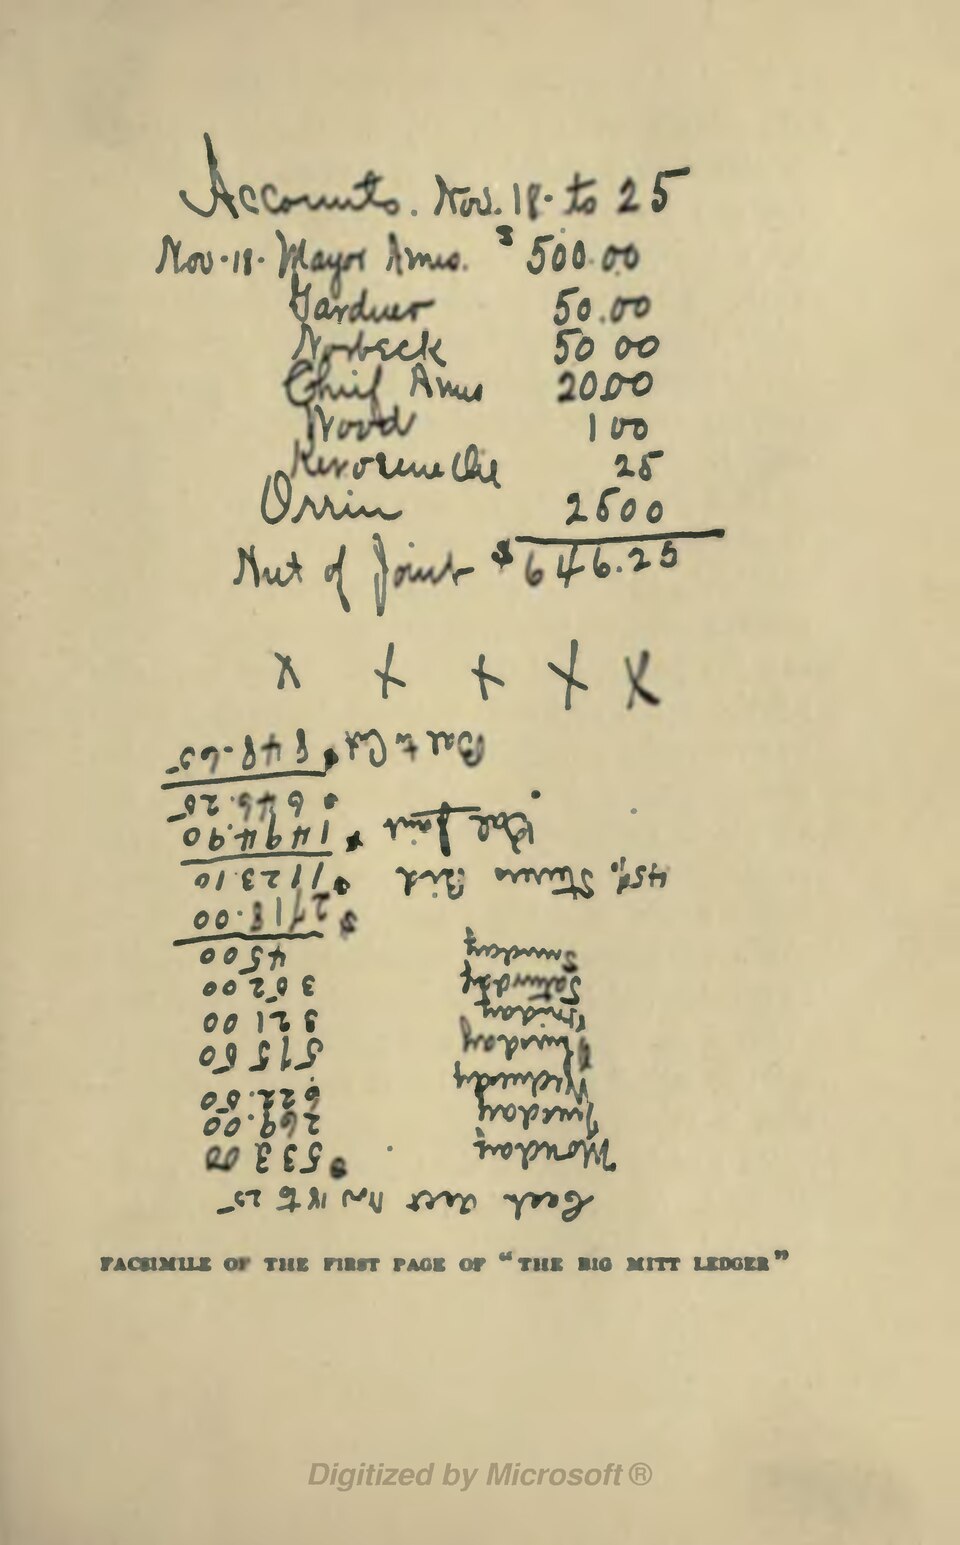 Accounts. Nov. 18. to 25
Nov. 18. Mayor Ames. $ 500.00
Gardner 50.00
Norbeck 50 00
Chief Ames 20 00
Wood 1 00
Kerosene Oil 25
Orrin 25 00
Nut of Joint $ 646.25
x x x x x
Cash acct Nov 18 to 25
Monday $ 533 00
Tuesday 269.00
Wednesday 622.50
Thursday 575 50
Friday 321 00
Saturday 352 00
Sunday 45 00
$ 2718.00
45% Steerers Bird $ 1123 10
Bal Joint $ 1494.90
646.25
Bal to Cut $ 848.65
FACSIMILE OF THE FIRST PAGE OF "THE BIG MITT LEDGER"
Digitized by Microsoft ®